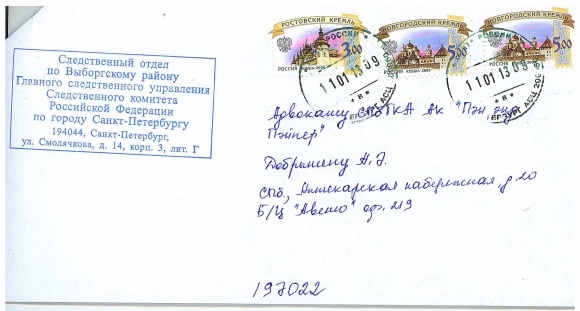 Следственный отдел
по Выборгскому району
Главного следственного управления
Следственного комитета
Российской Федерации
по городу Санкт-Петербургу
194044, Санкт-Петербург,
ул. Смолячкова, д. 14, корп. 3, лит. Г
РОСТОВСКИЙ КРЕМЛЬ
3.00
РОССИЯ RUSSIA 2009
НОВГОРОДСКИЙ КРЕМЛЬ
5.00
РОССИЯ RUSSIA 2009
НОВГОРОДСКИЙ КРЕМЛЬ
5.00
РОССИЯ
11 01 13 09
11 01 13 09
Адвокату АК "Пэн энд
Пэйпер"
Добрынину Н.
СПб, Аптекарская набережная, д. 20
Б/Ц "Авеню" оф. 219
197022